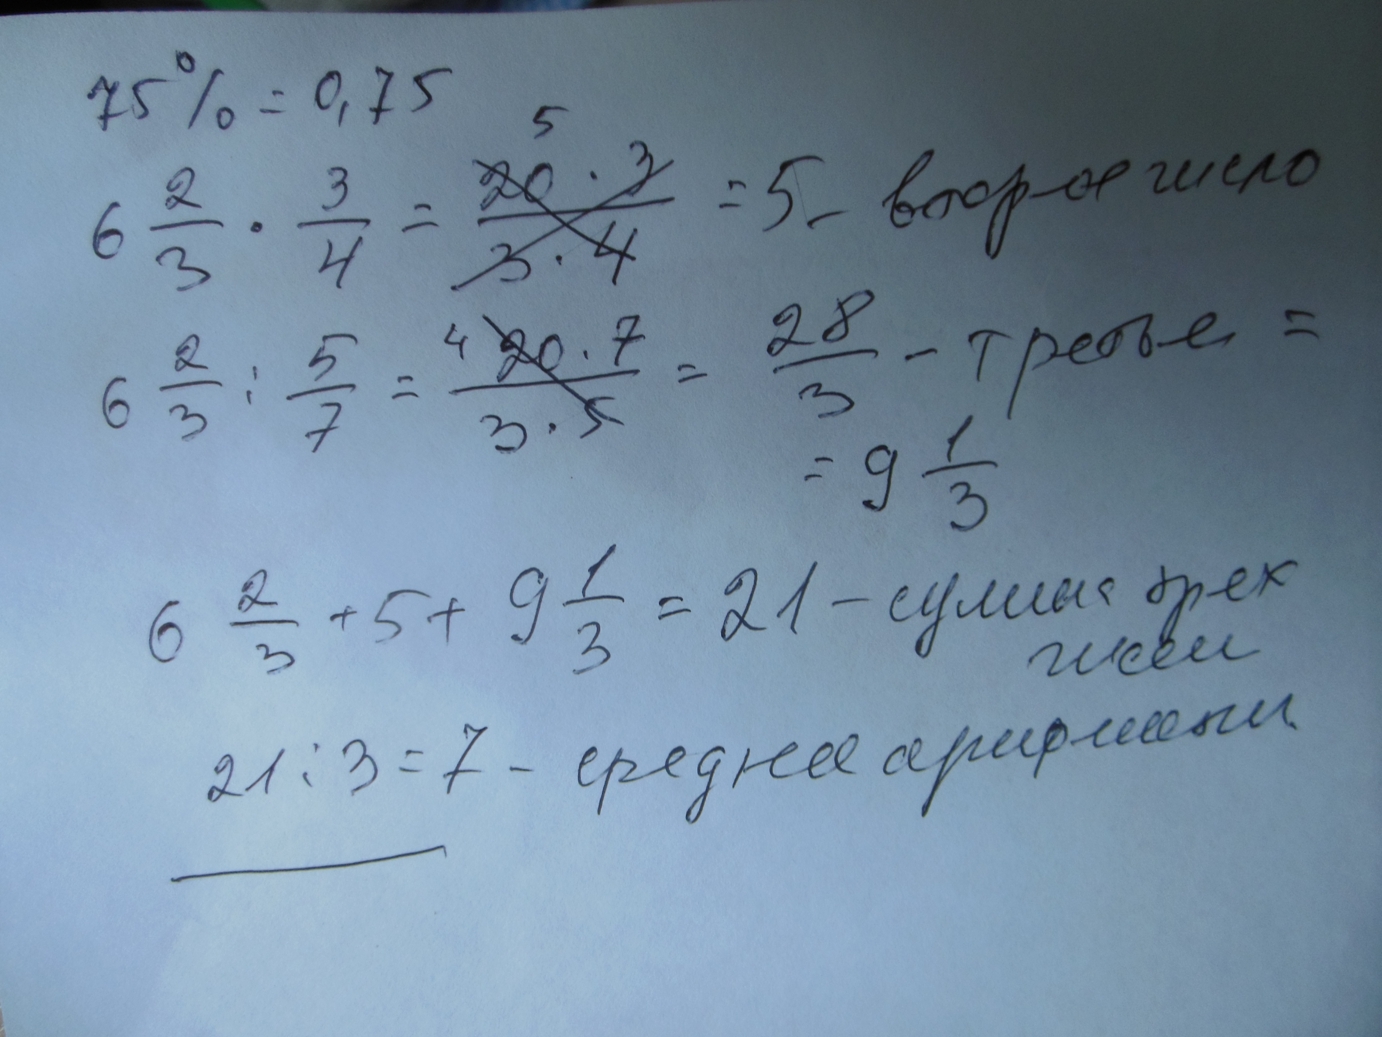 75% = 0,75
6 2/3 · 3/4 = 20 · 3 / 3 · 4 = 5 - второе число
5
6 2/3 : 5/7 = 20 · 7 / 3 · 5 = 28/3 - третье =
4
= 9 1/3
6 2/3 + 5 + 9 1/3 = 21 - сумма трех
чисел
21 : 3 = 7 - среднее